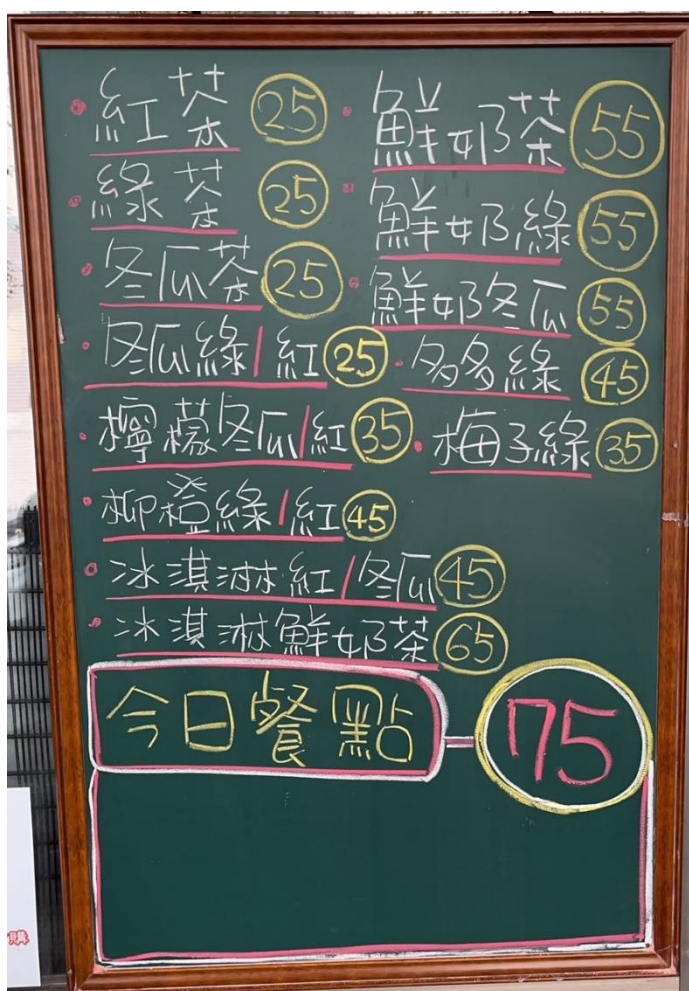 紅茶 25
綠茶 25
冬瓜茶 25
冬瓜綠/紅 25
檸檬冬瓜/紅 35
柳橙綠/紅 45
冰淇淋紅/冬瓜 45
冰淇淋鮮奶茶 65
鮮奶茶 55
鮮奶綠 55
鮮奶冬瓜 55
多多綠 45
梅子綠 35
今日餐點-75